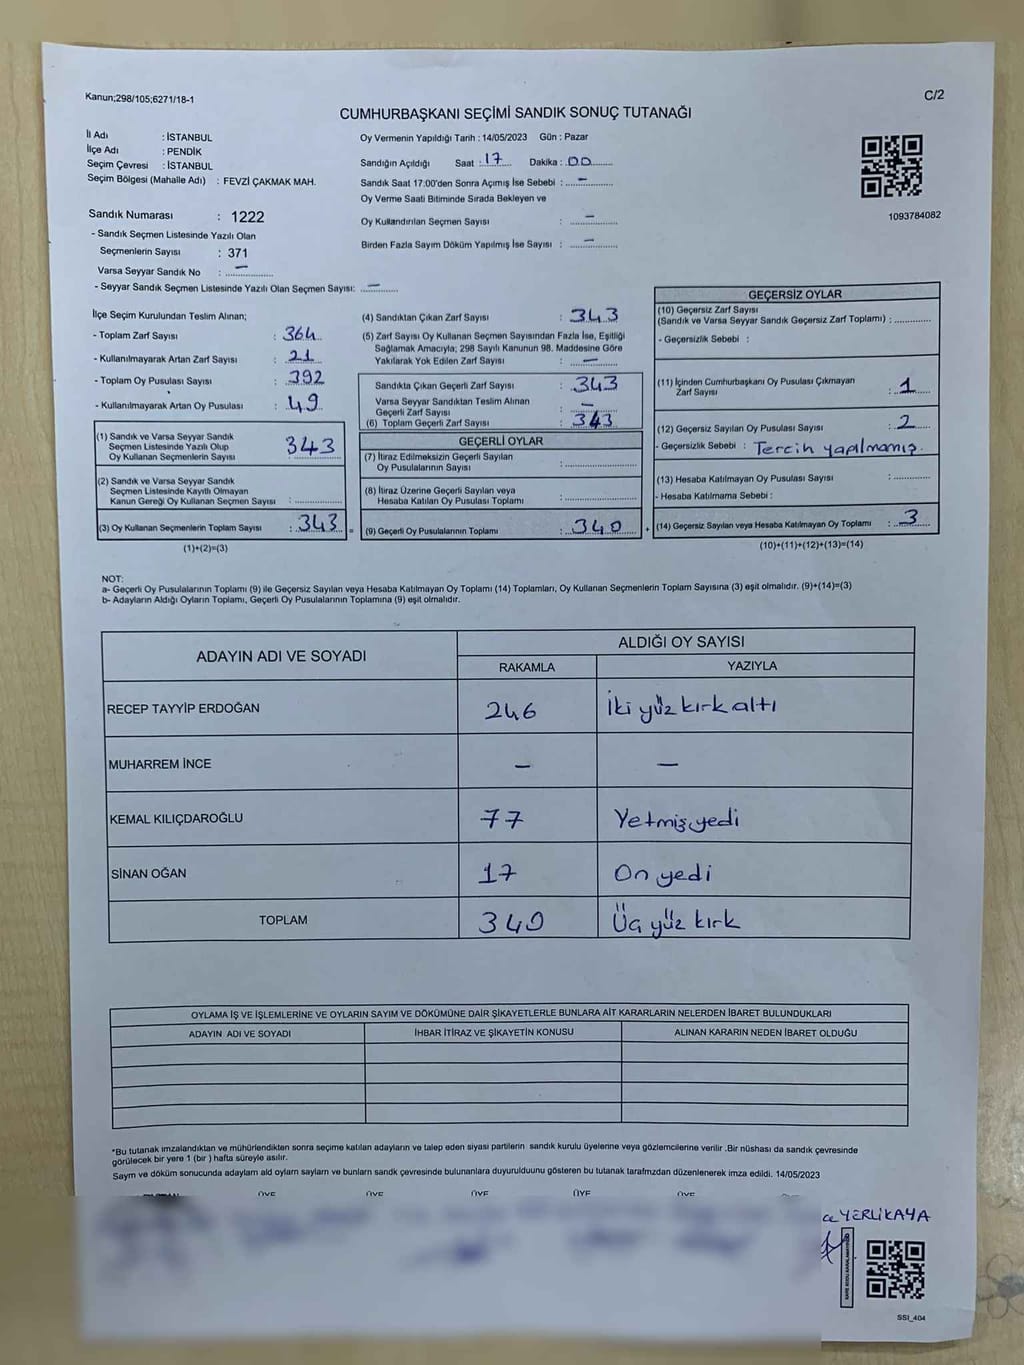 Kanun;298/105;6271/18-1
C/2
CUMHURBAŞKANI SEÇİMİ SANDIK SONUÇ TUTANAĞI
İl Adı : İSTANBUL
İlçe Adı : PENDİK
Seçim Çevresi : İSTANBUL
Seçim Bölgesi (Mahalle Adı) : FEVZİ ÇAKMAK MAH.
Sandık Numarası : 1222
- Sandık Seçmen Listesinde Yazılı Olan
Seçmenlerin Sayısı : 371
Varsa Seyyar Sandık No : —
- Seyyar Sandık Seçmen Listesinde Yazılı Olan Seçmen Sayısı: —
Oy Vermenin Yapıldığı Tarih : 14/05/2023 Gün : Pazar
Sandığın Açıldığı Saat : 17 Dakika : 00
Sandık Saat 17:00'den Sonra Açımış İse Sebebi : —
Oy Verme Saati Bitiminde Sırada Bekleyen ve
Oy Kullandırılan Seçmen Sayısı : —
Birden Fazla Sayım Döküm Yapılmış İse Sayısı : —
1093784082
İlçe Seçim Kurulundan Teslim Alınan;
- Toplam Zarf Sayısı : 364
- Kullanılmayarak Artan Zarf Sayısı : 21
- Toplam Oy Pusulası Sayısı : 392
- Kullanılmayarak Artan Oy Pusulası : 49
(1) Sandık ve Varsa Seyyar Sandık
Seçmen Listesinde Yazılı Olup
Oy Kullanan Seçmenlerin Sayısı : 343
(2) Sandık ve Varsa Seyyar Sandık
Seçmen Listesinde Kayıtlı Olmayan
Kanun Gereği Oy Kullanan Seçmen Sayısı :
(3) Oy Kullanan Seçmenlerin Toplam Sayısı : 343 =
(1)+(2)=(3)
(4) Sandıktan Çıkan Zarf Sayısı : 343
(5) Zarf Sayısı Oy Kullanan Seçmen Sayısından Fazla İse, Eşitliği
Sağlamak Amacıyla; 298 Sayılı Kanunun 98. Maddesine Göre
Yakılarak Yok Edilen Zarf Sayısı : —
Sandıkta Çıkan Geçerli Zarf Sayısı : 343
Varsa Seyyar Sandıktan Teslim Alınan
Geçerli Zarf Sayısı : —
(6) Toplam Geçerli Zarf Sayısı : 343
GEÇERLİ OYLAR
(7) İtiraz Edilmeksizin Geçerli Sayılan
Oy Pusulalarının Sayısı :
(8) İtiraz Üzerine Geçerli Sayılan veya
Hesaba Katılan Oy Pusulası Toplamı :
(9) Geçerli Oy Pusulalarının Toplamı : 340 +
GEÇERSİZ OYLAR
(10) Geçersiz Zarf Sayısı
(Sandık ve Varsa Seyyar Sandık Geçersiz Zarf Toplamı) :
- Geçersizlik Sebebi :
(11) İçinden Cumhurbaşkanı Oy Pusulası Çıkmayan
Zarf Sayısı : 1
(12) Geçersiz Sayılan Oy Pusulası Sayısı : 2
- Geçersizlik Sebebi : Tercih yapılmamış.
(13) Hesaba Katılmayan Oy Pusulası Sayısı :
- Hesaba Katılmama Sebebi :
(14) Geçersiz Sayılan veya Hesaba Katılmayan Oy Toplamı : 3
(10)+(11)+(12)+(13)=(14)
NOT:
a- Geçerli Oy Pusulalarının Toplamı (9) ile Geçersiz Sayılan veya Hesaba Katılmayan Oy Toplamı (14) Toplamları, Oy Kullanan Seçmenlerin Toplam Sayısına (3) eşit olmalıdır. (9)+(14)=(3)
b- Adayların Aldığı Oyların Toplamı, Geçerli Oy Pusulalarının Toplamına (9) eşit olmalıdır.
ADAYIN ADI VE SOYADI
ALDIĞI OY SAYISI
RAKAMLA YAZIYLA
RECEP TAYYİP ERDOĞAN 246 İki yüz kırk altı
MUHARREM İNCE — —
KEMAL KILIÇDAROĞLU 77 Yetmiş yedi
SİNAN OĞAN 17 On yedi
TOPLAM 340 Üç yüz kırk
OYLAMA İŞ VE İŞLEMLERİNE VE OYLARIN SAYIM VE DÖKÜMÜNE DAİR ŞİKAYETLERLE BUNLARA AİT KARARLARIN NELERDEN İBARET BULUNDUKLARI
ADAYIN ADI VE SOYADI İHBAR İTİRAZ VE ŞİKAYETİN KONUSU ALINAN KARARIN NEDEN İBARET OLDUĞU
*Bu tutanak imzalandıktan ve mühürlendikten sonra seçime katılan adayların ve talep eden siyasi partilerin sandık kurulu üyelerine veya gözlemcilerine verilir .Bir nüshası da sandık çevresinde
görülecek bir yere 1 (bir ) hafta süreyle asılır.
Saym ve döküm sonucunda adaylarn ald oylarn saylarn ve bunlarn sandk çevresinde bulunanlara duyurulduunu gösteren bu tutanak tarafmzdan düzenlenerek imza edildi. 14/05/2023
ÜYE ÜYE ÜYE ÜYE ÜYE
YERLİKAYA
SSI_404